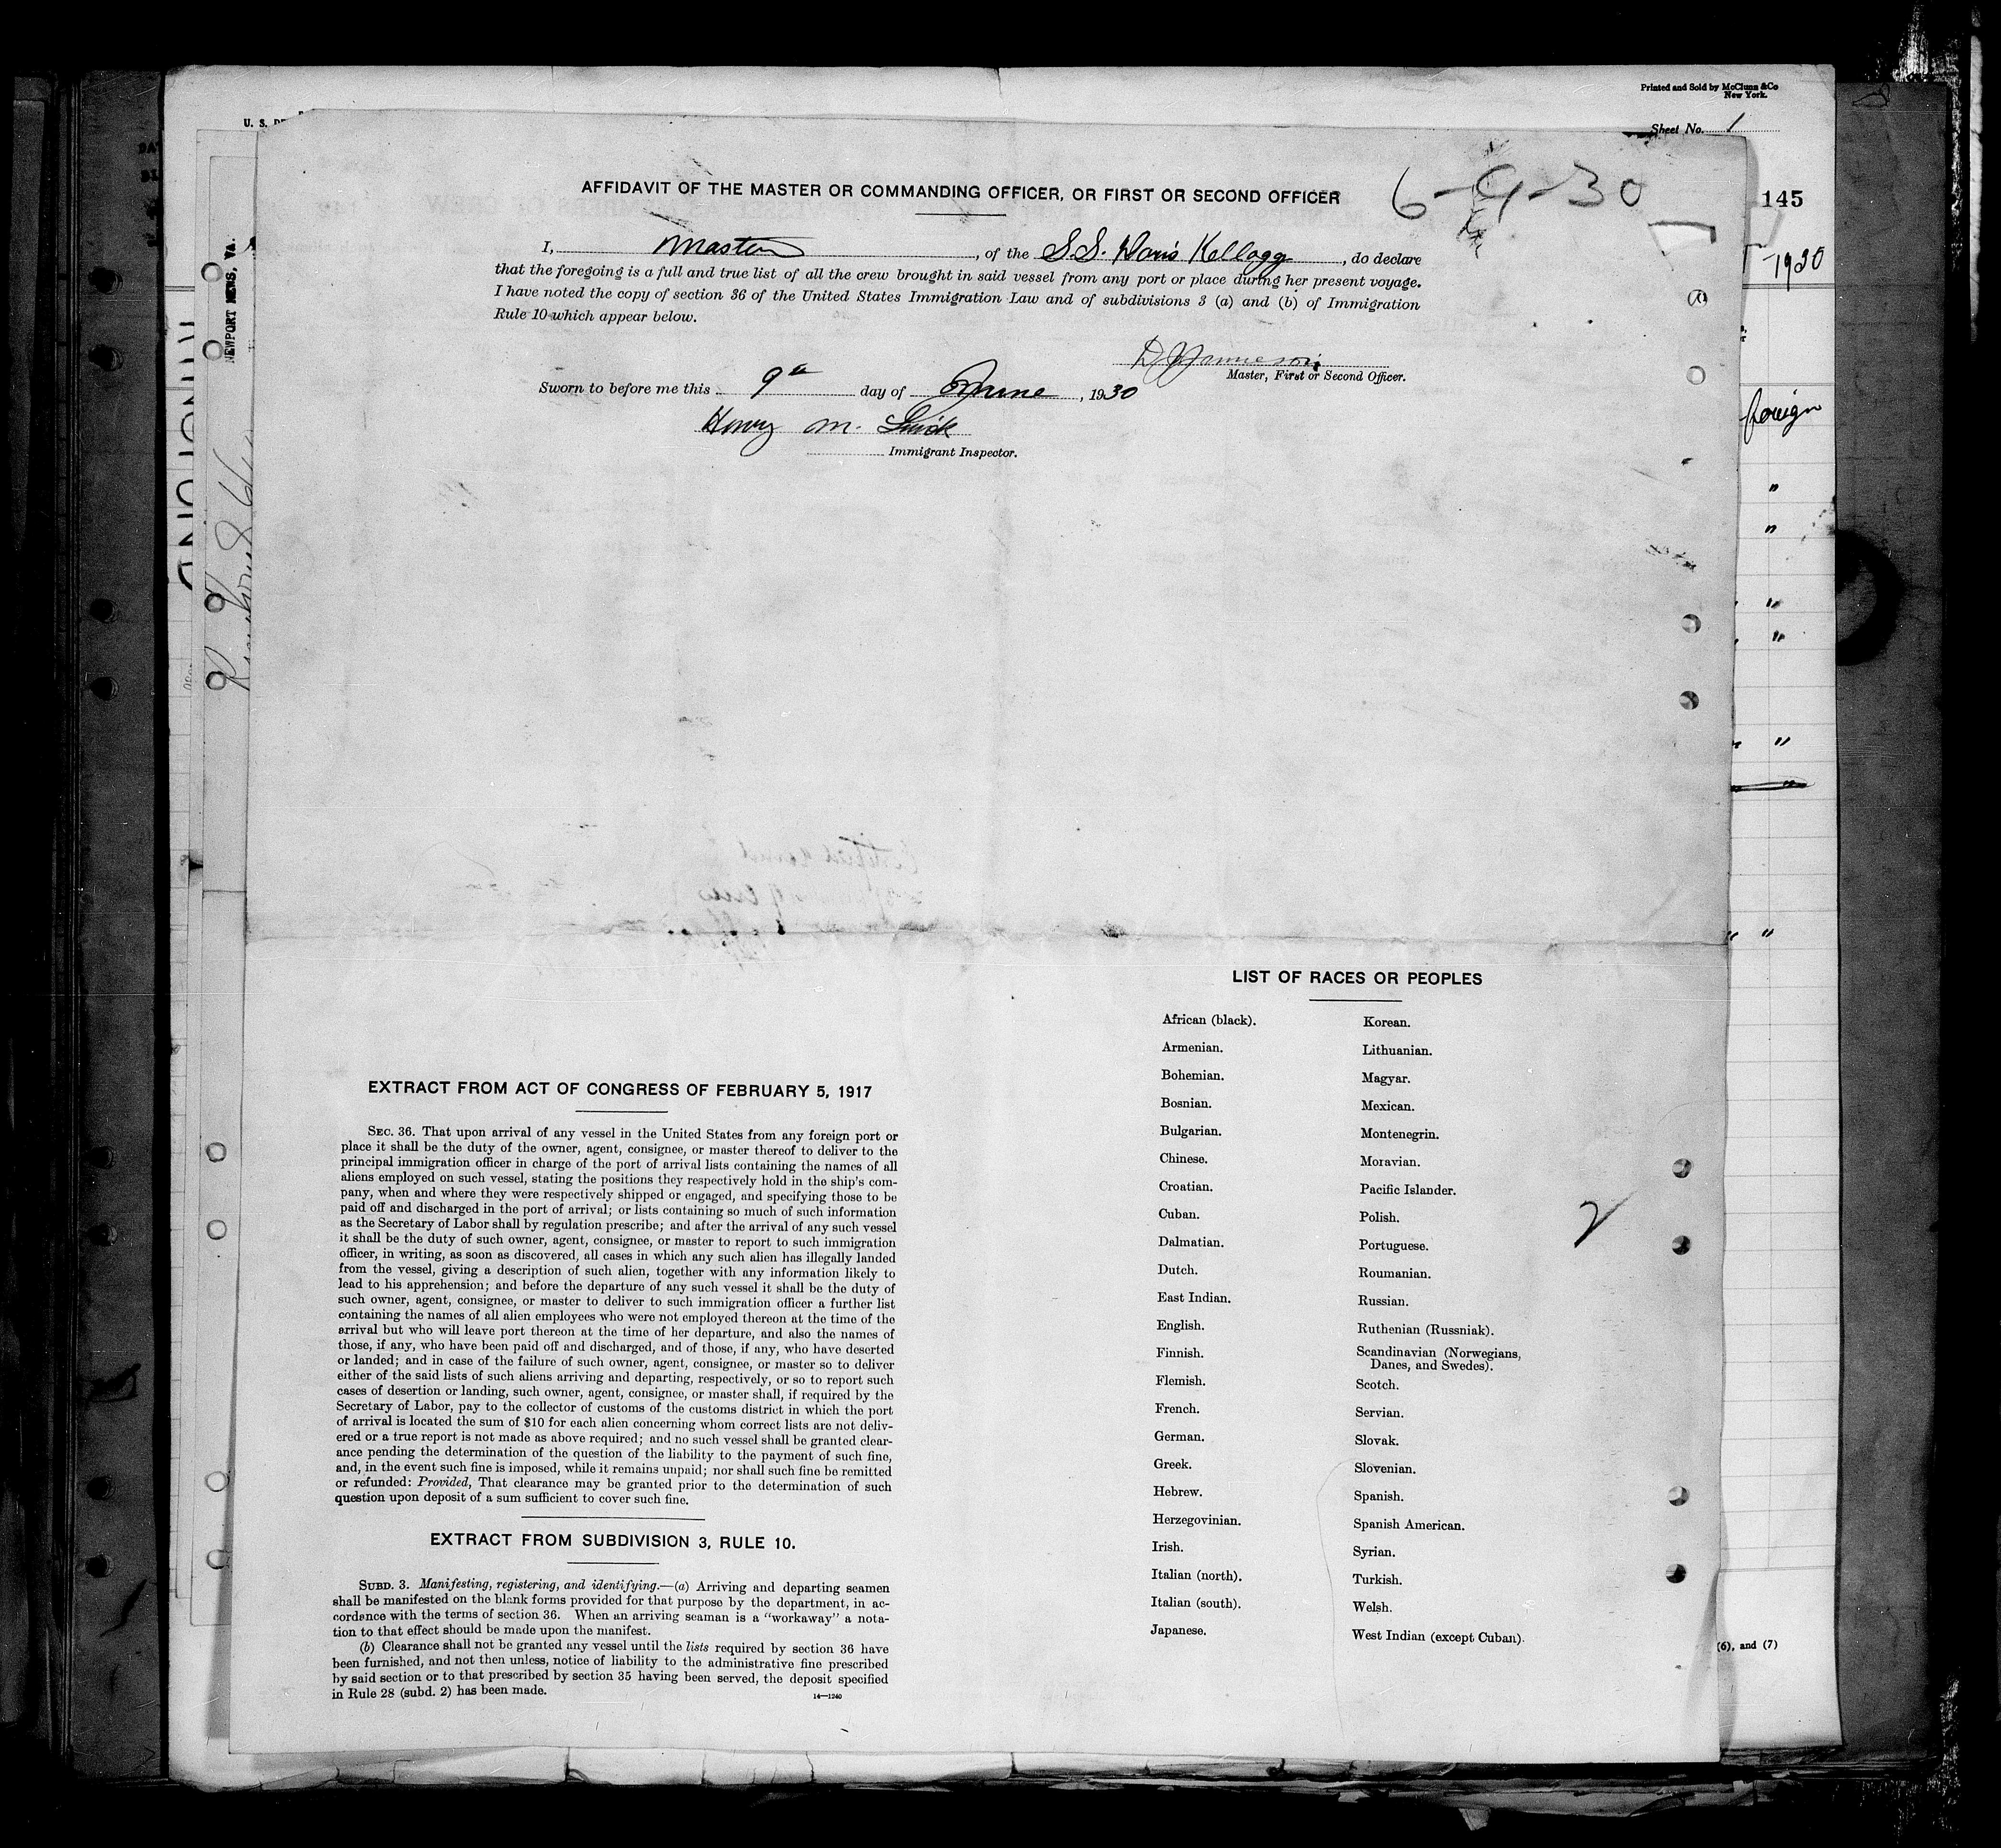 Printed and Sold by McClunn & Co
New York.
Sheet No. 1
U. S. DE
145
1930
NEWPORT NEWS, Va.
foreign
6-9-30
AFFIDAVIT OF THE MASTER OR COMMANDING OFFICER, OR FIRST OR SECOND OFFICER
I, Master, of the S.S. Doris Kellogg, do declare
that the foregoing is a full and true list of all the crew brought in said vessel from any port or place during her present voyage.
I have noted the copy of section 36 of the United States Immigration Law and of subdivisions 3 (a) and (b) of Immigration
Rule 10 which appear below.
Master, First or Second Officer.
Sworn to before me this 9th day of June, 1930
Henry M.
Immigrant Inspector.
EXTRACT FROM ACT OF CONGRESS OF FEBRUARY 5, 1917
SEC. 36. That upon arrival of any vessel in the United States from any foreign port or
place it shall be the duty of the owner, agent, consignee, or master thereof to deliver to the
principal immigration officer in charge of the port of arrival lists containing the names of all
aliens employed on such vessel, stating the positions they respectively hold in the ship's com-
pany, when and where they were respectively shipped or engaged, and specifying those to be
paid off and discharged in the port of arrival; or lists containing so much of such information
as the Secretary of Labor shall by regulation prescribe; and after the arrival of any such vessel
it shall be the duty of such owner, agent, consignee, or master to report to such immigration
officer, in writing, as soon as discovered, all cases in which any such alien has illegally landed
from the vessel, giving a description of such alien, together with any information likely to
lead to his apprehension; and before the departure of any such vessel it shall be the duty of
such owner, agent, consignee, or master to deliver to such immigration officer a further list
containing the names of all alien employees who were not employed thereon at the time of the
arrival but who will leave port thereon at the time of her departure, and also the names of
those, if any, who have been paid off and discharged, and of those, if any, who have deserted
or landed; and in case of the failure of such owner, agent, consignee, or master so to deliver
either of the said lists of such aliens arriving and departing, respectively, or so to report such
cases of desertion or landing, such owner, agent, consignee, or master shall, if required by the
Secretary of Labor, pay to the collector of customs of the customs district in which the port
of arrival is located the sum of $10 for each alien concerning whom correct lists are not deliv-
ered or a true report is not made as above required; and no such vessel shall be granted clear-
ance pending the determination of the question of the liability to the payment of such fine,
and, in the event such fine is imposed, while it remains unpaid; nor shall such fine be remitted
or refunded: Provided, That clearance may be granted prior to the determination of such
question upon deposit of a sum sufficient to cover such fine.
EXTRACT FROM SUBDIVISION 3, RULE 10.
SUBD. 3. Manifesting, registering, and identifying.—(a) Arriving and departing seamen
shall be manifested on the blank forms provided for that purpose by the department, in ac-
cordance with the terms of section 36. When an arriving seaman is a "workaway" a nota-
tion to that effect should be made upon the manifest.
(b) Clearance shall not be granted any vessel until the lists required by section 36 have
been furnished, and not then unless, notice of liability to the administrative fine prescribed
by said section or to that prescribed by section 35 having been served, the deposit specified
in Rule 28 (subd. 2) has been made.
14—1240
LIST OF RACES OR PEOPLES
African (black).
Armenian.
Bohemian.
Bosnian.
Bulgarian.
Chinese.
Croatian.
Cuban.
Dalmatian.
Dutch.
East Indian.
English.
Finnish.
Flemish.
French.
German.
Greek.
Hebrew.
Herzegovinian.
Irish.
Italian (north).
Italian (south).
Japanese.
Korean.
Lithuanian.
Magyar.
Mexican.
Montenegrin.
Moravian.
Pacific Islander.
Polish.
Portuguese.
Roumanian.
Russian.
Ruthenian (Russniak).
Scandinavian (Norwegians,
Danes, and Swedes).
Scotch.
Servian.
Slovak.
Slovenian.
Spanish.
Spanish American.
Syrian.
Turkish.
Welsh.
West Indian (except Cuban).
2
(6), and (7)